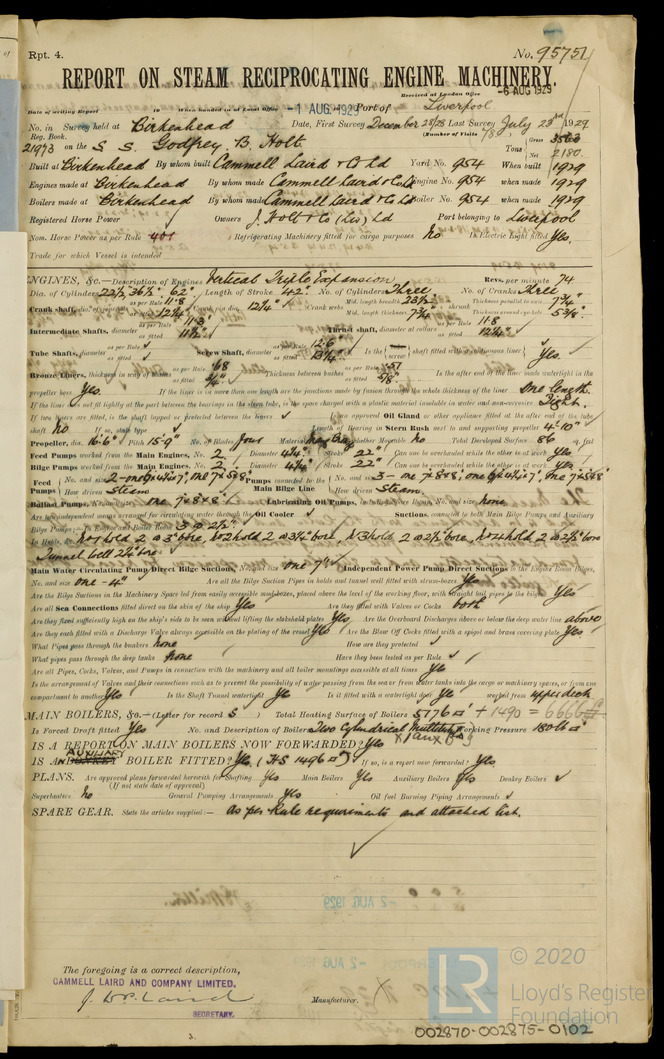 Rpt. 4.
No. 95751
REPORT ON STEAM RECIPROCATING ENGINE MACHINERY.
Received at London Office -6 AUG 1929
Date of writing Report 19 When handed in at Local Office -1 AUG. 1929 Port of Liverpool
No. in Survey held at Birkenhead Date, First Survey December 28/28 Last Survey July 23rd 1929
Reg. Book. (Number of Visits 78)
21973 on the S S. Godfrey. B. Holt. Tons Gross 3580 Net 2180
Built at Birkenhead By whom built Cammell Laird & Co Ld Yard No. 954 When built 1929
Engines made at Birkenhead By whom made Cammell Laird & Co Ld Engine No. 954 when made 1929
Boilers made at Birkenhead By whom made Cammell Laird & Co Ld Boiler No. 954 when made 1929
Registered Horse Power Owners J. Holt & Co (Liv) Ld Port belonging to Liverpool
Nom. Horse Power as per Rule 401 Is Refrigerating Machinery fitted for cargo purposes No Is Electric Light fitted Yes.
Trade for which Vessel is intended
ENGINES, &c.—Description of Engines Vertical Triple Expansion Revs. per minute 74
Dia. of Cylinders 22½, 36½" 62" Length of Stroke 42" No. of Cylinders Three No. of Cranks Three
Crank shaft, dia. of journals as per Rule 11.8 as fitted 12¼" Crank pin dia. 12¼" Crank webs Mid. length breadth 23½" Mid. length thickness 7¾" shrunk Thickness parallel to axis 7¾" Thickness around eye-hole 5⅜"
Intermediate Shafts, diameter as per Rule 11.3 as fitted 11½" Thrust shaft, diameter at collars as per Rule 11.8 as fitted 12¼"
Tube Shafts, diameter as per Rule as fitted Screw Shaft, diameter as per Rule 12.6 as fitted 13¼" Is the screw shaft fitted with a continuous liner Yes
Bronze Liners, thickness in way of bushes as per Rule .68 as fitted ¾" Thickness between bushes as per Rule .51 as fitted ⅝" Is the after end of the liner made watertight in the
propeller boss Yes. If the liner is in more than one length are the junctions made by fusion through the whole thickness of the liner One length.
If the liner does not fit tightly at the part between the bearings in the stern tube, is the space charged with a plastic material insoluble in water and non-corrosive Tight.
If two liners are fitted, is the shaft lapped or protected between the liners Is an approved Oil Gland or other appliance fitted at the after end of the tube
shaft No If so, state type Length of Bearing in Stern Bush next to and supporting propeller 4'-10"
Propeller, dia. 16'-6" Pitch 15'-9" No. of Blades four Material whether Moveable no Total Developed Surface 86 sq. feet
Feed Pumps worked from the Main Engines, No. 2 Diameter 4¼" Stroke 22" Can one be overhauled while the other is at work Yes
Bilge Pumps worked from the Main Engines, No. 2 Diameter 4¼" Stroke 22" Can one be overhauled while the other is at work Yes
Feed Pumps No. and size How driven Steam
Pumps connected to the Main Bilge Line No. and size How driven Steam.
Ballast Pumps, No. and size One 7"x8"x8" Lubricating Oil Pumps, including Spare Pump, No. and size none
Are two independent means arranged for circulating water through the Oil Cooler Suctions, connected to both Main Bilge Pumps and Auxiliary
Bilge Pumps;—In Engine and Boiler Room 3 @ 2½"
In Holds, &c. No 1 hold 2 @ 3" bore, No 2 hold 2 @ 3¼" bore, No 3 hold 2 @ 2½" bore, No 4 hold 2 @ 2½" bore
Tunnel well 2½" bore
Main Water Circulating Pump Direct Bilge Suctions, No. and size one 7" Independent Power Pump Direct Suctions to the Engine Room Bilges,
No. and size one - 4" Are all the Bilge Suction Pipes in holds and tunnel well fitted with strum-boxes Yes
Are the Bilge Suctions in the Machinery Space led from easily accessible mud-boxes, placed above the level of the working floor, with straight tail pipes to the bilges Yes
Are all Sea Connections fitted direct on the skin of the ship Yes Are they fitted with Valves or Cocks both
Are they fixed sufficiently high on the ship's side to be seen without lifting the stokehold plates Yes Are the Overboard Discharges above or below the deep water line above
Are they each fitted with a Discharge Valve always accessible on the plating of the vessel Yes Are the Blow Off Cocks fitted with a spigot and brass covering plate Yes
What Pipes pass through the bunkers none How are they protected
What pipes pass through the deep tanks none Have they been tested as per Rule
Are all Pipes, Cocks, Valves, and Pumps in connection with the machinery and all boiler mountings accessible at all times Yes
Is the arrangement of Valves and their connections such as to prevent the possibility of water passing from the sea or from water tanks into the cargo or machinery spaces, or from one
compartment to another Yes Is the Shaft Tunnel watertight Yes Is it fitted with a watertight door Yes worked from upper deck
MAIN BOILERS, &c.—(Letter for record S ) Total Heating Surface of Boilers 5176 □' + 1490 = 6666
Is Forced Draft fitted Yes No. and Description of Boilers Two Cylindrical Multitub. Working Pressure 180 lb □"
IS A REPORT ON MAIN BOILERS NOW FORWARDED? Yes
IS AN AUXILIARY BOILER FITTED? Yes (HS 1496 □') If so, is a report now forwarded? Yes
PLANS. Are approved plans forwarded herewith for Shafting Yes Main Boilers Yes Auxiliary Boilers Yes Donkey Boilers
(If not state date of approval)
Superheaters No General Pumping Arrangements Yes Oil fuel Burning Piping Arrangements
SPARE GEAR. State the articles supplied:— As per Rule requirements and attached list.
The foregoing is a correct description,
CAMMELL LAIRD AND COMPANY LIMITED.
SECRETARY.
Manufacturer.
© 2020
LR
Lloyd's Register
Foundation
002870-002875-0102